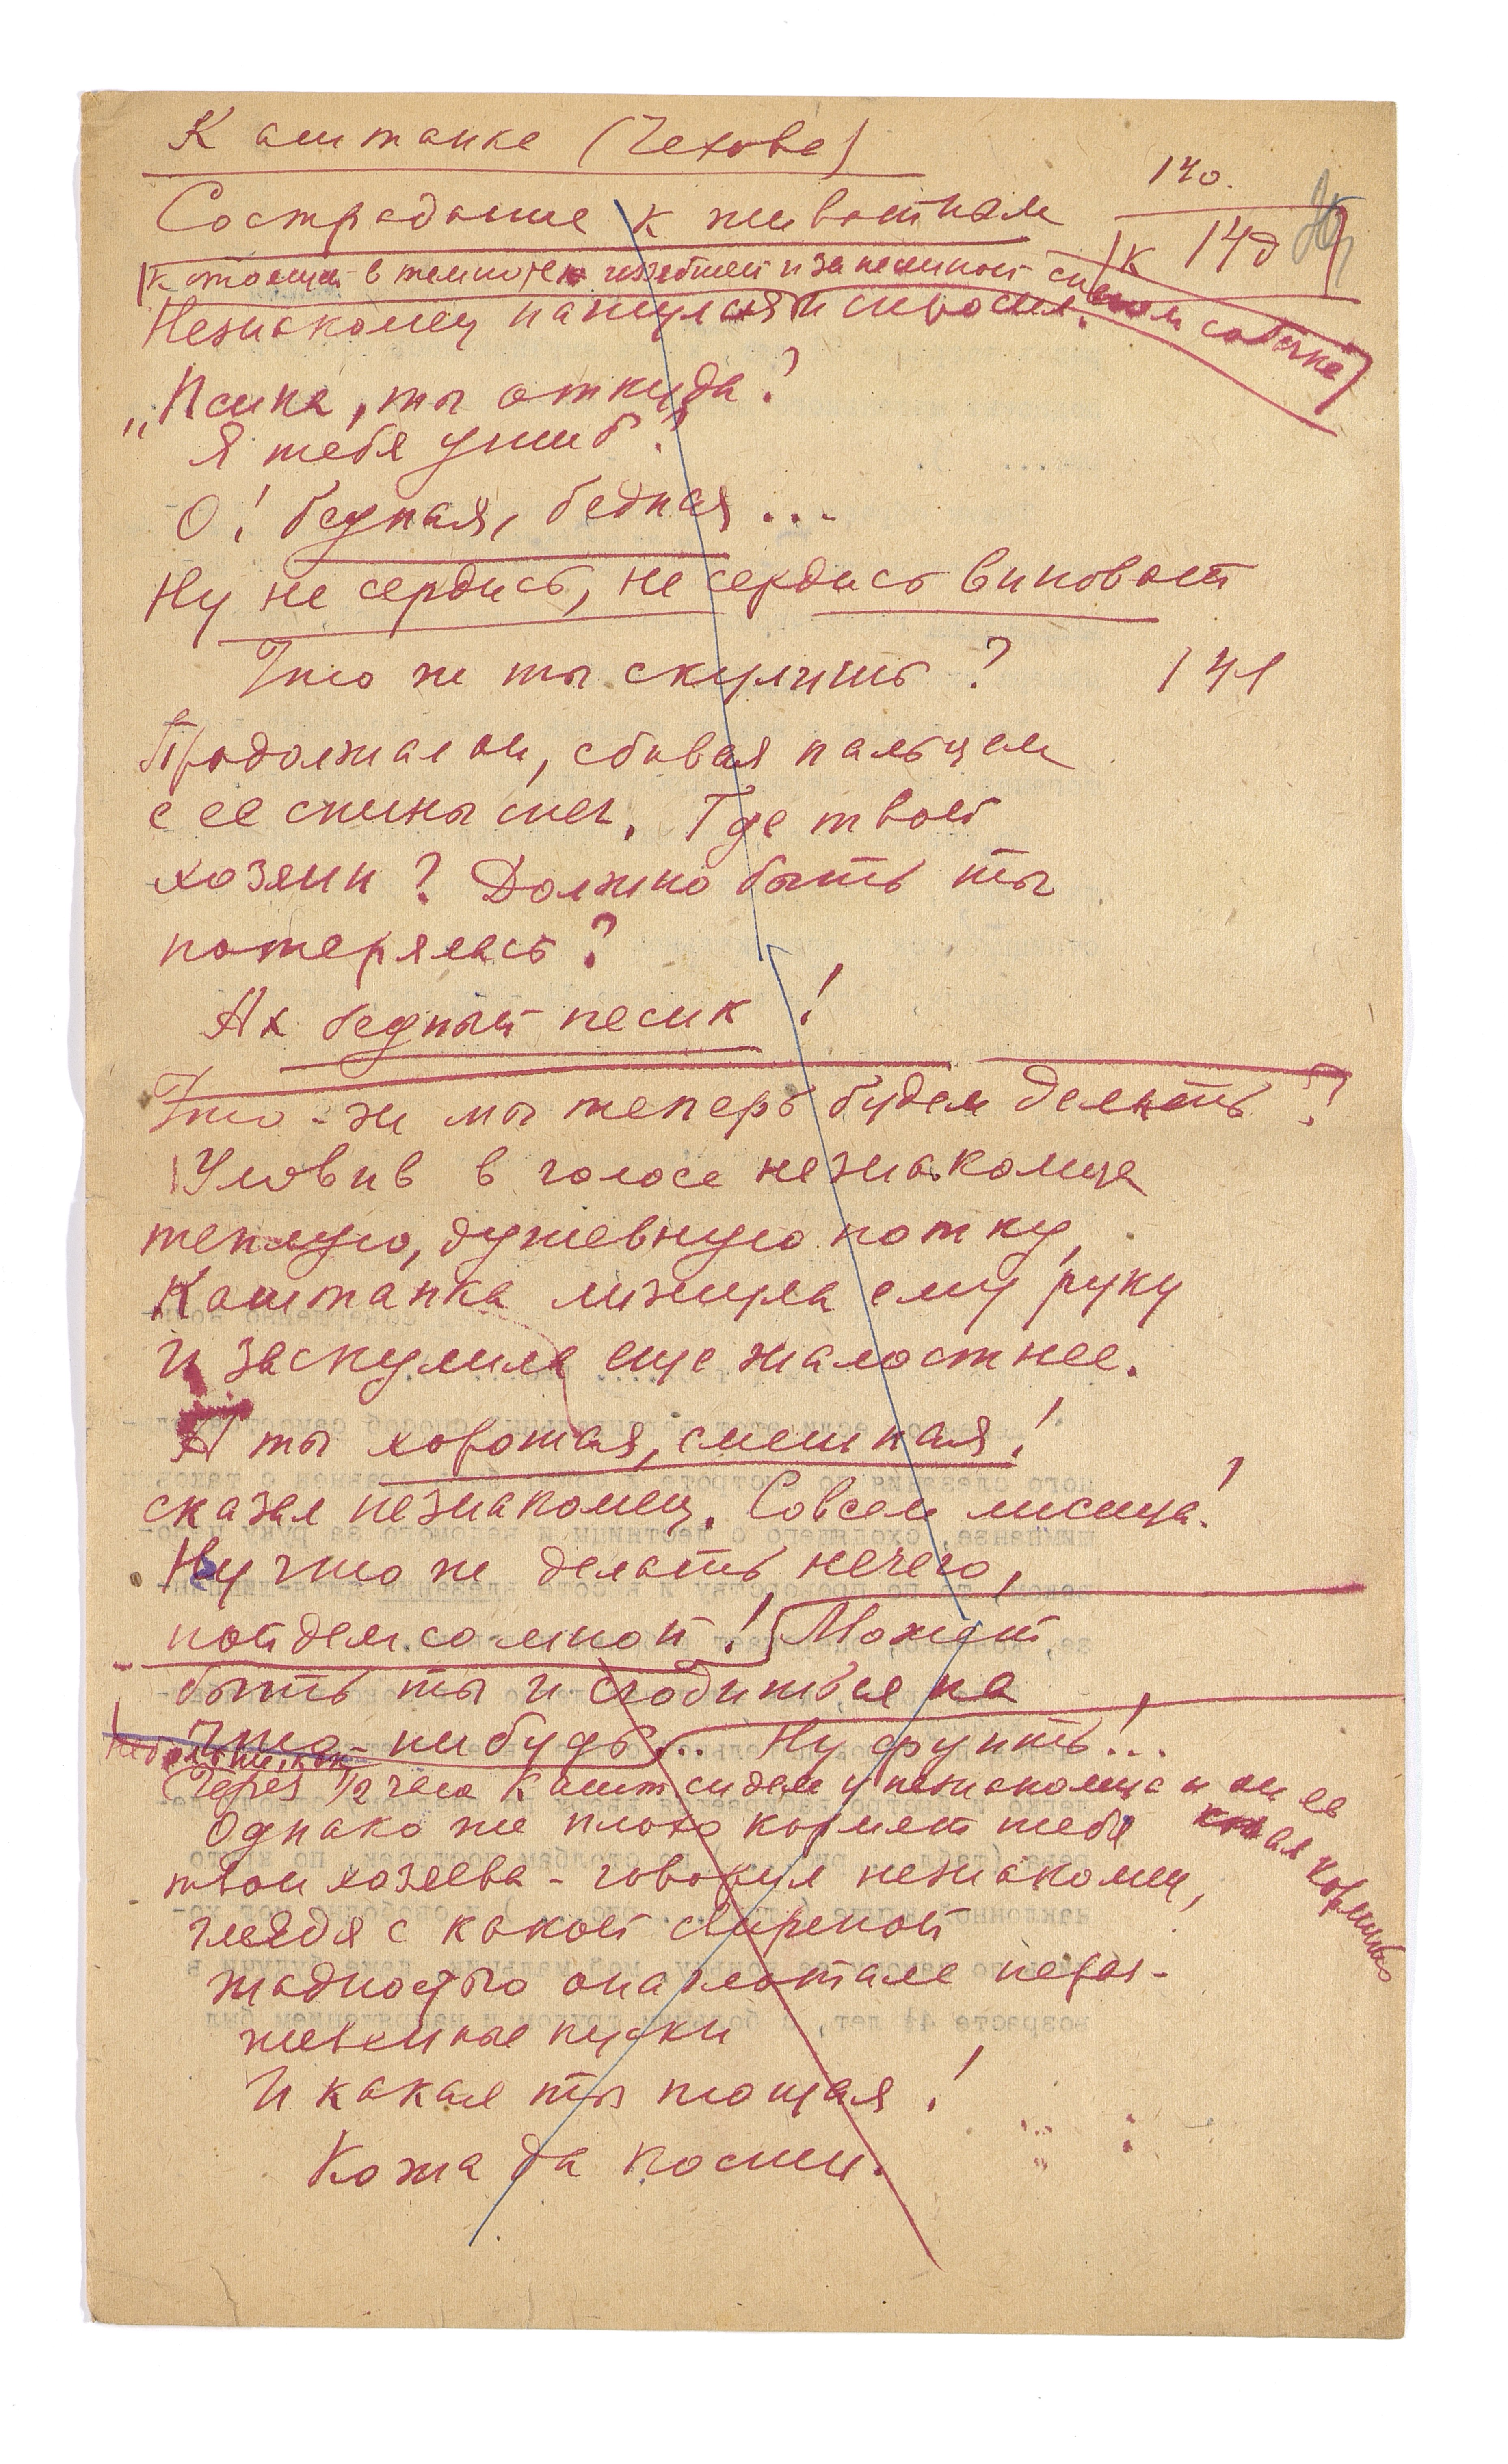 Каштанке (Чехова)
140.
Сострадание к животным
к 140
к стоящей в темноте и занесенной снегом собачке
Незнакомец нагнулся и спросил.
„Псина, ты откуда?
Я тебя ушиб?
О! бедная, бедная...
Ну не сердись, не сердись виноват
Что же ты скулишь? 141
Продолжал он, сбивая пальцем
с ее спины снег. Где твой
хозяин? Должно быть ты
потерялась?
Ах бедный песик!
Что-же мы теперь будем делать?
Уловив в голосе незнакомца
теплую, душевную нотку,
Каштанка лизнула ему руку
и заскулила еще жалостнее.
А ты хорошая, смешная!
сказал незнакомец. Совсем лисица!
Ну что же делать нечего,
пойдем со мной! Может
быть ты и сгодишься на
что-нибудь... Ну фупть!..
Через 1/2 часа Кашт сидела у незнакомца и он ее
кормил
Однако же плохо кормят тебя
твои хозяева - говорил незнакомец,
глядя с какой свирепой
жадностью она глотала нераз-
жеванные куски
И какая ты тощая!
Кожа да кости.